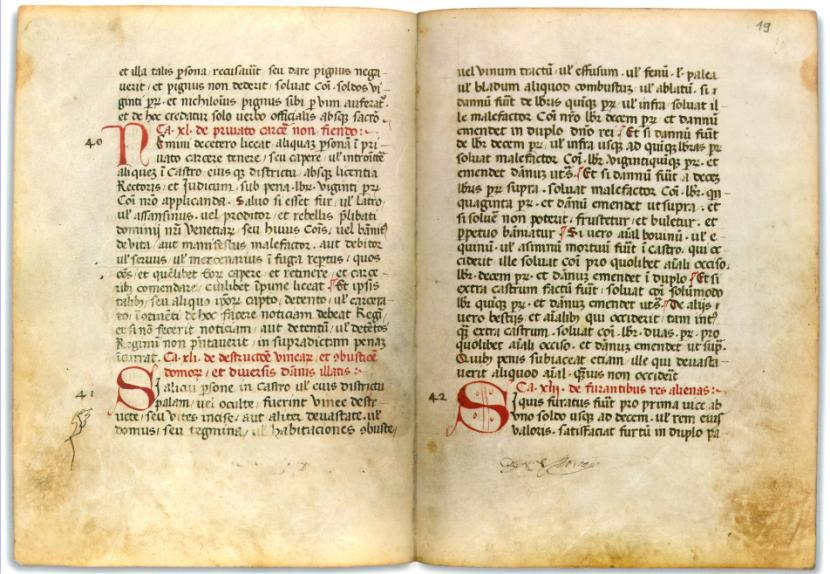 et illa talis p̱sona recusauit̄ seu dare pignus nega
uerit et pignus non dederit soluat Coı̄ soldos vi
ginti p̱ꝝ et nichilonius pignus sibi p̱ vim auferat᷑
et de hoc credatur solo uerbo officialis absq̱ sacro
Ca. xl. de priuato carcē non fiendo
40
Nemini decetero liceat aliquaʒ p̱sonā ī pri
uato carcere tenere seu capere ul' introitē
aliqueʒ ī Castro eius q̱ districtu absq̱ licentia
Rectoris et Judicum sub pena lbr viginti p̱ꝝ
Coı̄ nrō applicanda. Saluo si esset fur ul' latro
ul' assassinus uel proditor et rebellis p̱libati
dominij nrī Venetiaꝝ seu huius Coı̄s uel banitꝰ
de vita aut manifestus malefactor aut debitor
ul' seruus ul' mercenarius ī fuga reptus quos
oēs et quēlibet eoꝝ capere et retinere et carce
ribꝰ comendare cuilibet īpune liceat Et ipsis
talibꝫ seu aliquo ipsoꝝ capto detento ul' carcera
to notitiā de hoc facere noticiam debeat Regı̄
et si nō fecerit noticiam aut detentū ul' detētos
Regimı̄ non p̱ntauerit in supradictam penaʒ
īcurrat. Ca. xli. de destructōe vineaꝝ et ɔbusticē
domoꝝ et diuersis dānis illatis
41
Si aliqū p̱sone in Castro ul' eius districtu
palam uel oculte fuerint vinee destr
ucte seu vites incise aut aliter deuastate ul'
domus seu tegmina ul' habitaciones ɔbuste
19
uel vinum tractū ul' effusum ul' fenū l' palea
ul' bladum aliquod combustuʒ ul' ablatū. si
dannū fuīt de lbris quiq̱ p̱ꝝ ul' infra soluat il
le malefactor Coı̄ nrō lbr decem p̱ꝝ et dannū
emendet in duplo dn̄o rei Et si dannū fuīt
de lbr decem p̱ꝝ ul' infra usq̱ ad quiq̱ lbras p̱ꝝ
soluat malefactor Coı̄ lbr vigintiquiq̱ p̱ꝝ et
emendet danū uts̄. Et si dannū fuīt a deceʒ
lbris p̱ꝝ supra soluat malefactor Coı̄ lbr qn̄
quaginta p̱ꝝ et danū emendet ut supra et
si soluē non poterit frustetur et buletur et
p̱petuo baniatur Si vero aīal bouinū ul' e
quinū ul' asininū mortuū fuīt ī castro qui oc
ciderit ille soluat coı̄ pro quolibet aīali occiso
lbr decem p̱ꝝ et danuʒ emendet ī duplo Et si
extra castrum factū fuīt soluat coı̄ solūmodo
lbr quiq̱ p̱ꝝ et danuʒ emendet uts̄ De alijs
uero bestijs et aīalibꝫ qui occiderit tam intꝰ
q̄ extra castrum soluat coı̄ lbr duas p̱ꝝ pro
quolibet aīali occiso et danuʒ emendet ut sup̄
Quibꝫ penis subiaceat etiam ille qui deuasta
uerit aliquod aīal q̄uis non occideīt
Ca. xlii. de furantibus res alienas
42
Si quis furatus fuīt pro prima uice ab
vno soldo usq̱ ad decem ul' rem eius
valoris satisfaciat furtū in duplo pa